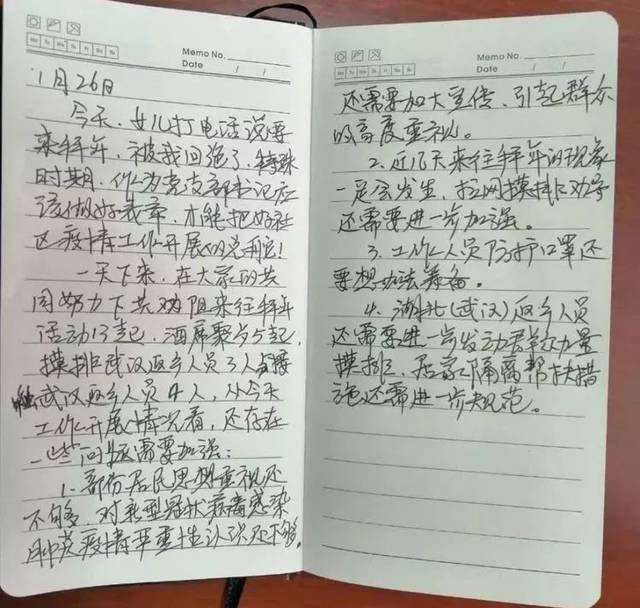 Memo No.
Date / /
Mo Tu We Th Fr Sa Su
1月26日
今天，女儿打电话说要
来拜年，被我回绝了，特殊
时期，作为党支部书记应
该做好表率，才能把好社
区疫情工作开展的更好！
一天下来，在大家的共
同努力下共劝阻来往拜年
活动13起，酒席聚岁5起，
摸排武汉返乡人员3人，接
触武汉返乡人员4人，从今天
工作开展情况看，还存在
一些问题需要加强：
1、部份居民思想重视还
不够，对新型冠状病毒感染
肺炎疫情严重性认识还不够，
Memo No.
Date / /
Mo Tu We Th Fr Sa Su
还需要加大宣传，引起群众
的高度重视。
2、近几天来往拜年的现象
一定会发生，拉网摸排，劝导
还需要进一步加强。
3、工作人员防护口罩还
要想办法筹备。
4、湖北（武汉）返乡人员
还需要进一步发动群众力量
摸排，居家隔离帮扶措
施还需进一步规范。